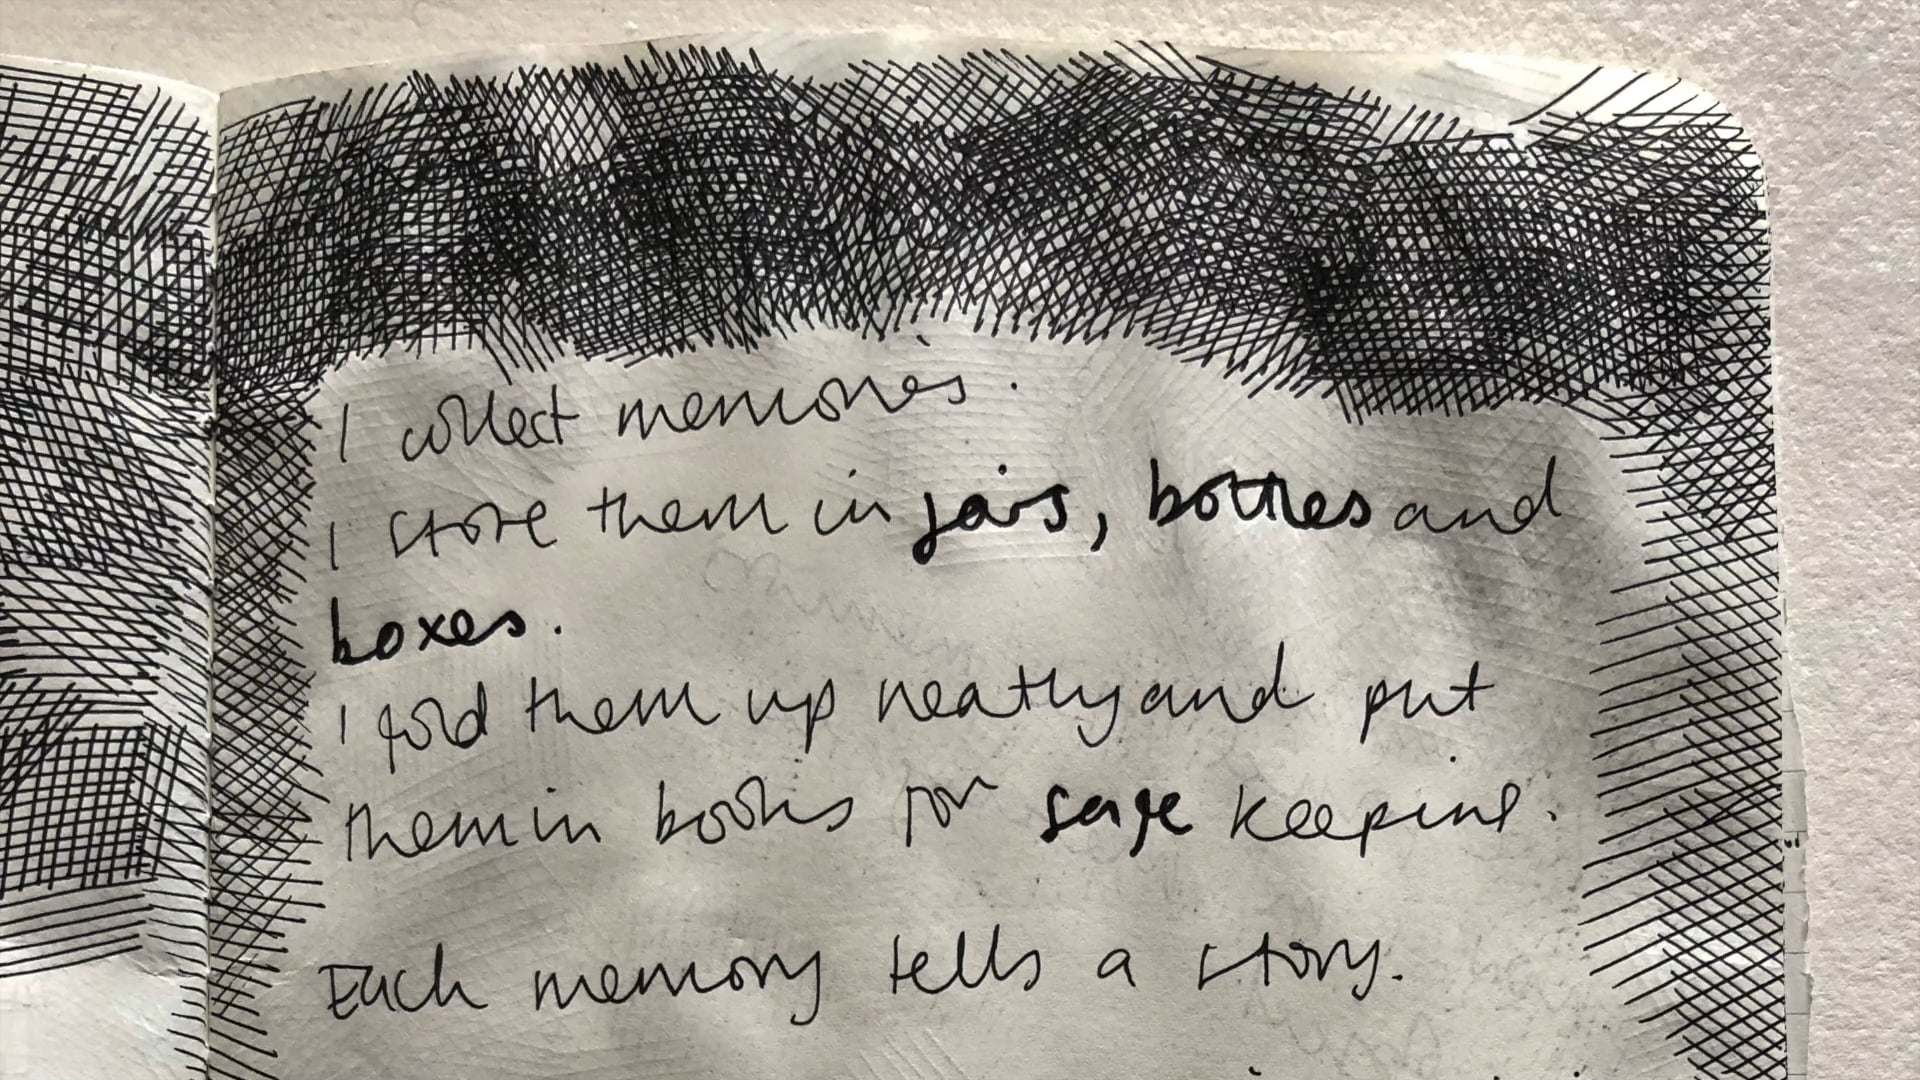 I collect memories.
I store them in jars, bottles and
boxes.
I fold them up neatly and put
them in books for safe keeping.
Each memory tells a story.